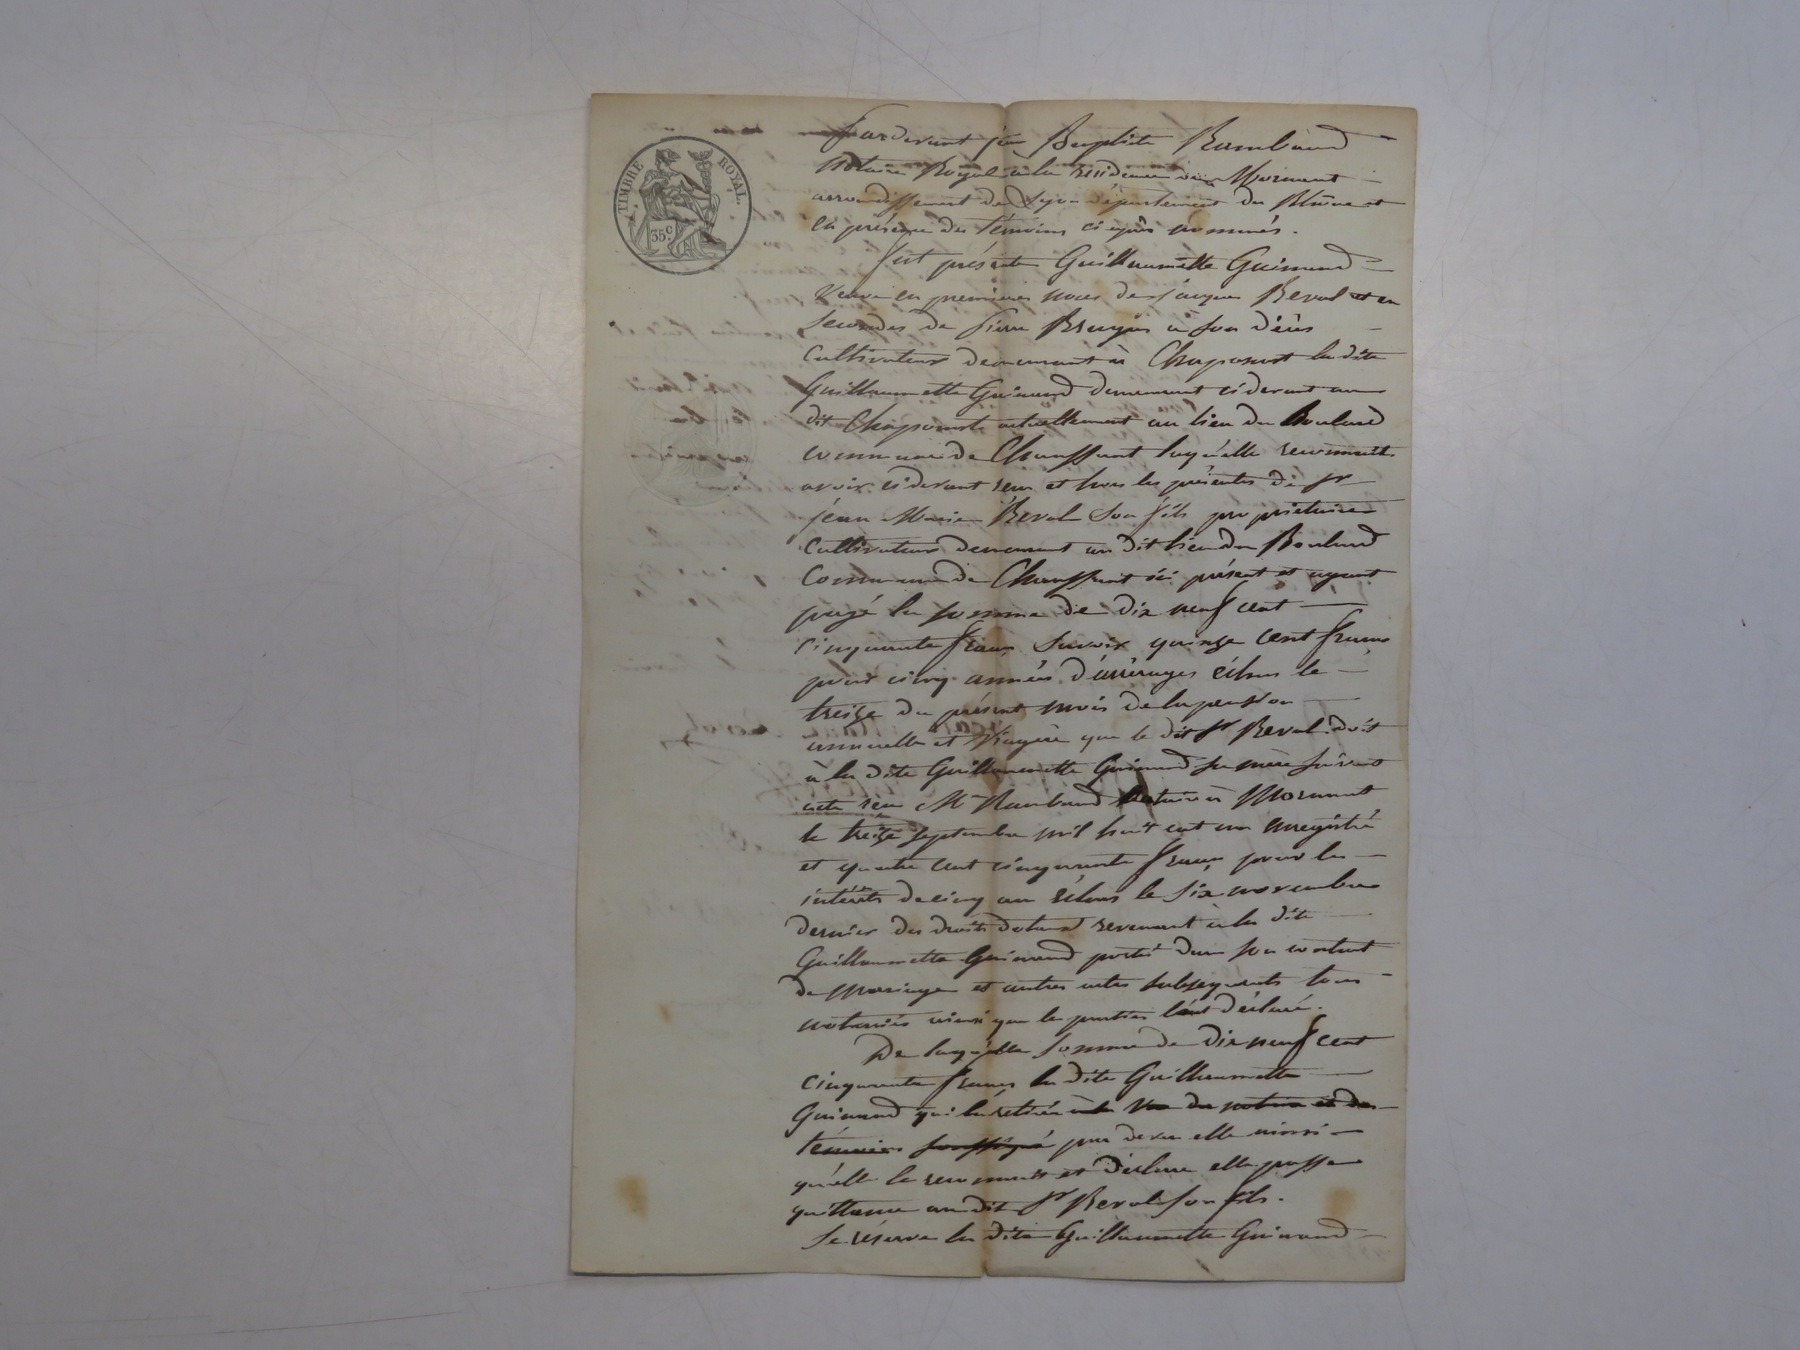 TIMBRE ROYAL.
35 c
Pardevant jean Baptiste Rambaud
Notaire Royal à la résidence de Mornant
arrondissement de Lyon département du Rhône et
en présence des témoins ci après nommés.
fut présente Guillaumette Guinand
Veuve en premières noces de jacques Reval et en
secondes de Pierre à son décès
cultivateur demeurant à Chaponost la dite
Guillaumette Guinand demeurant ci devant au
dit Chaponost actuellement au lieu du Boulard
commune de Chaussant laquelle reconnait
avoir ci devant reçu et hors les présentes de Sr
jean Marie Reval son fils propriétaire
cultivateur demeurant au dit lieu du Boulard
Commune de Chaussant ici présent et ayant
payé la somme de dix neuf cent
cinquante francs Savoir quinze cent francs
pour cinq années d'arrérages échus le
treize du présent mois de la pension
annuelle et Viagère que le dit Sr Reval doit
à la dite Guillaumette Guinand sa mère suivant
acte reçu Me Rambaud Notaire à Mornant
le treize septembre mil huit cent un enregistré
et quatre cent cinquante francs pour les
intérêts de cinq ans échus le six novembre
dernier des droits dotaux revenant à la dite
Guillaumette Guinand porté dans son contrat
de Mariage et autres actes subséquents tous
notariés ainsi que les parties l'ont déclaré.
De laquelle somme de dix neuf cent
cinquante francs la dite Guillaumette
Guinand qui l'a retirée à la Vue du notaire et des
témoins soussigné par devers elle ainsi
qu'elle le reconnait et déclare elle passe
quittance au dit Sr Reval son fils.
Se réserve la dite Guillaumette Guinand